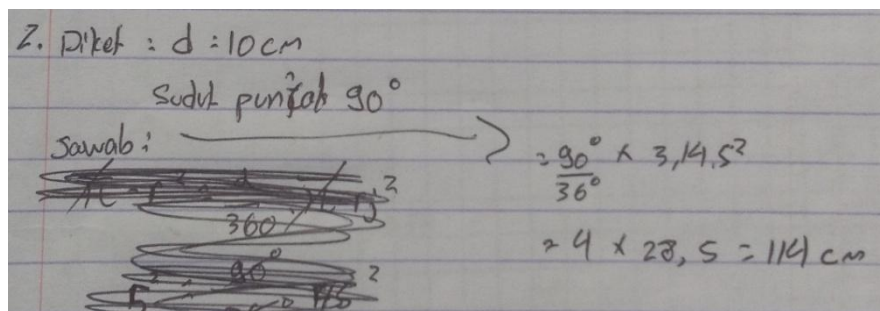 2. Diket : d = 10 cm
Sudut puncab 90°
Jawab :
= 90° / 36° × 3,14.5²
= 4 × 28,5 = 114 cm